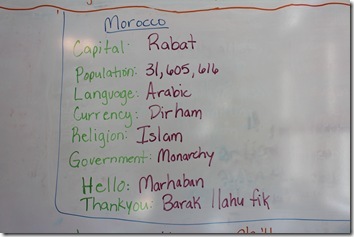 Morocco
Capital: Rabat
Population: 31,605,616
Language: Arabic
Currency: Dirham
Religion: Islam
Government: Monarchy
Hello: Marhaban
Thankyou: Barak llahu fik